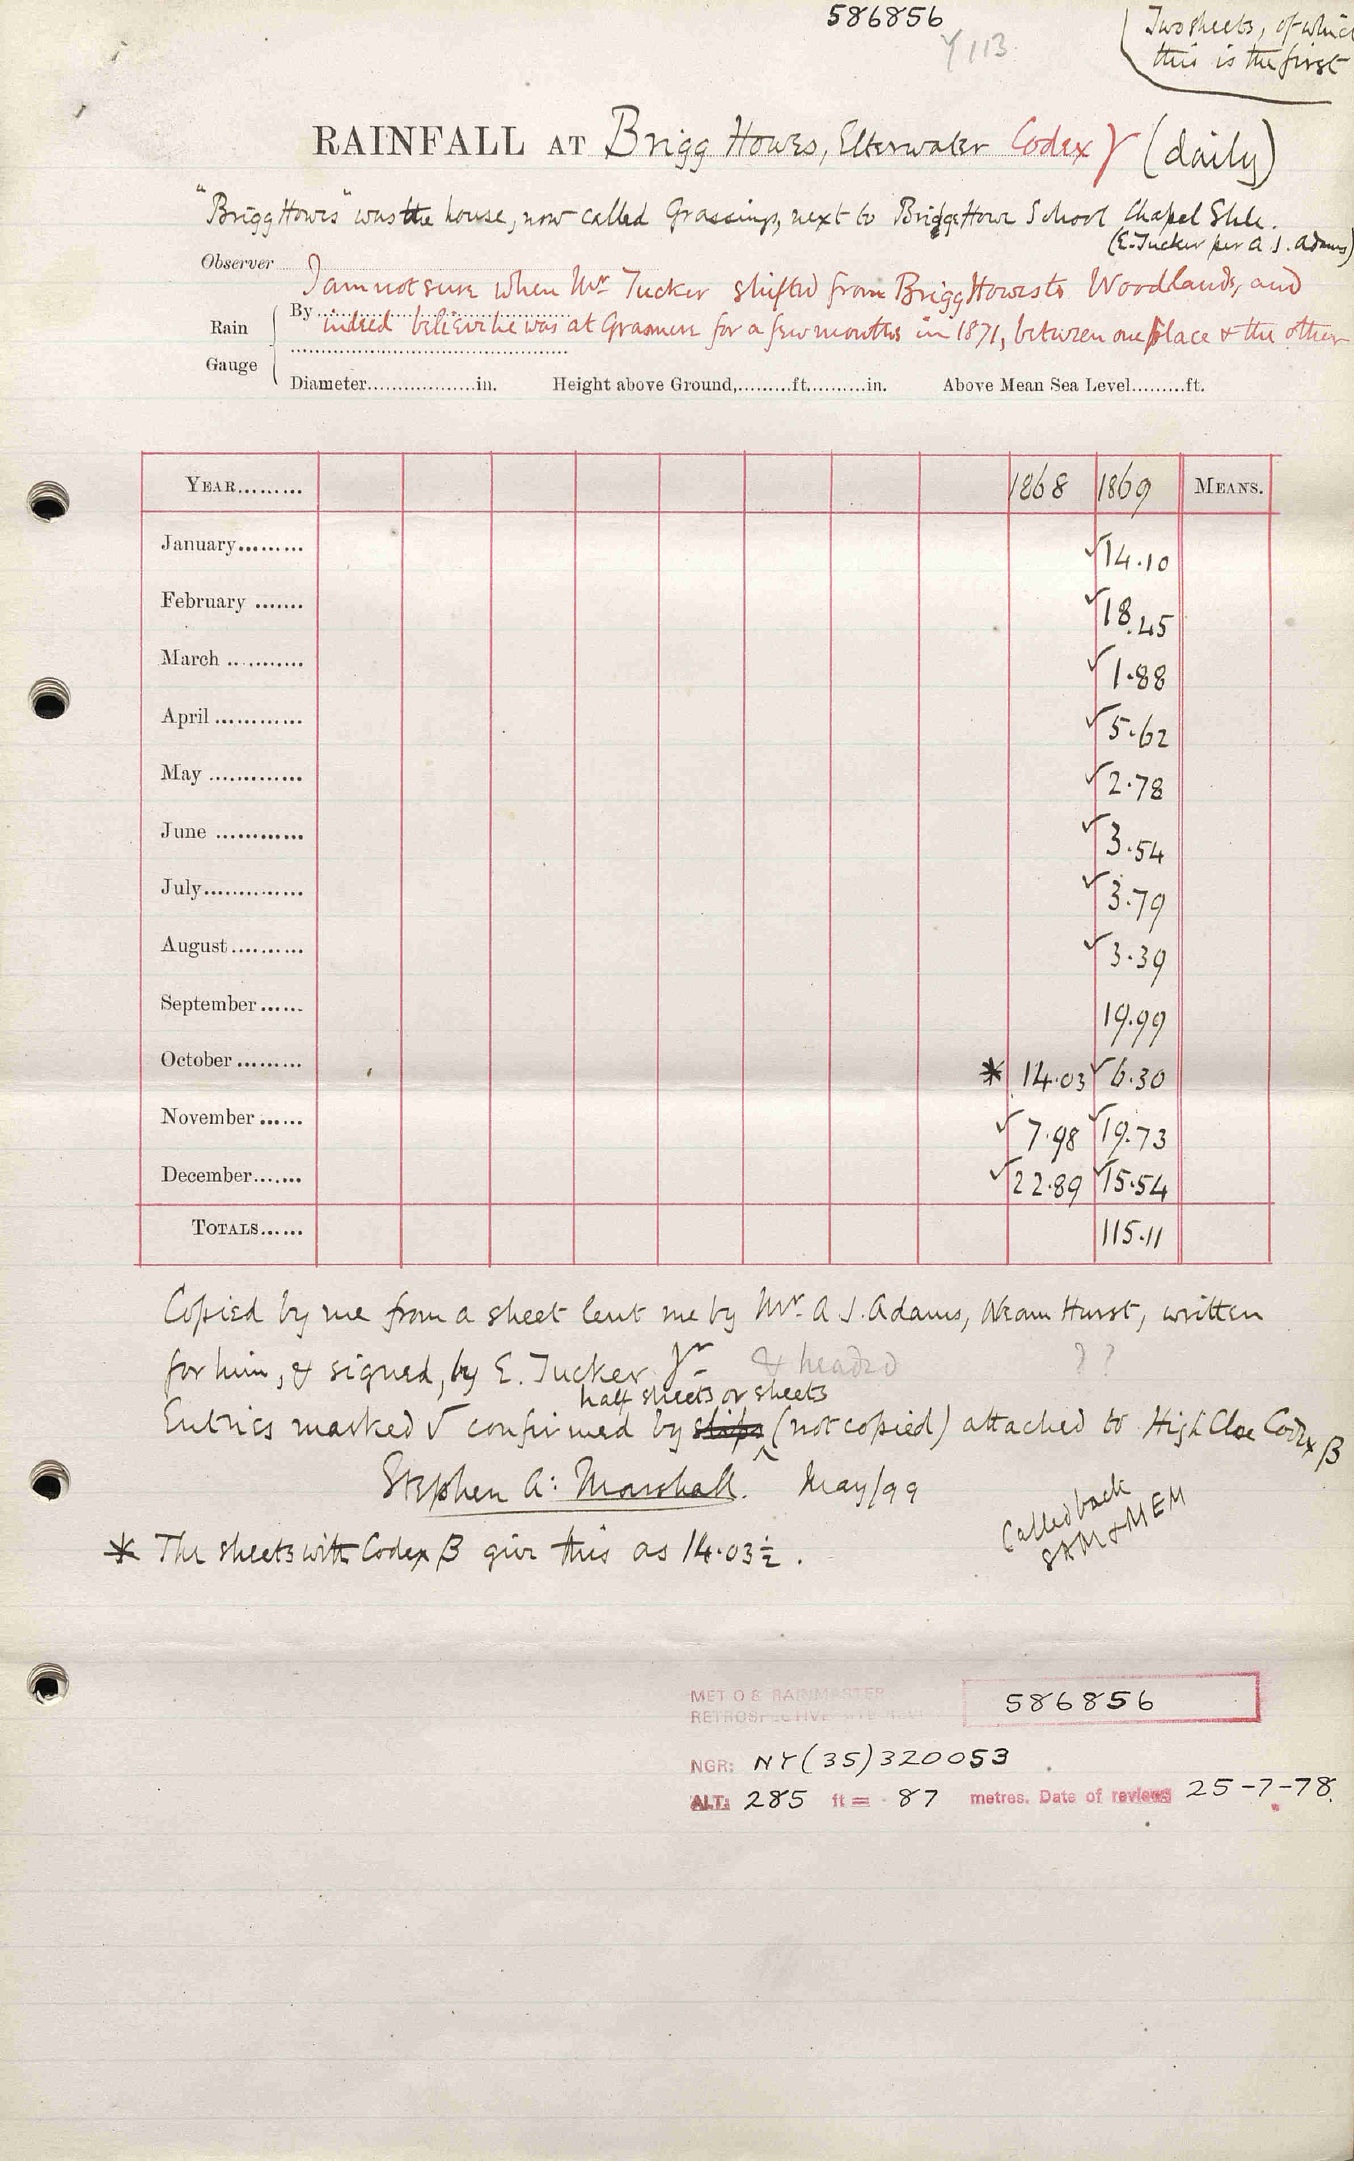 586856
Y113
Two sheets, of which
this is the first
RAINFALL AT Brigg Howes, Elterwater Codex γ (daily)
"Brigg Howes" was the house, now called Grassings, next to Brigge Howe School Chapel Stile.
(E. Tucker per A. J. Adams)
Observer
I am not sure when Mr. Tucker shifted from Brigg Howes to Woodlands, and
Rain Gauge
By indeed believe he was at Grasmere for a few months in 1871, between one place & the other
Diameter..................in. Height above Ground,.........ft..........in. Above Mean Sea Level.........ft.
YEAR......... 1868 1869 MEANS.
January......... √ 14.10
February ....... √ 18.45
March ........... √ 1.88
April ............ √ 5.62
May ............. √ 2.78
June ............ √ 3.54
July............... √ 3.79
August.......... √ 3.39
September...... 19.99
October......... * 14.03 √ 6.30
November ...... √ 7.98 √ 19.73
December....... √ 22.89 √ 15.54
TOTALS...... 115.11
Copied by me from a sheet lent me by Mr. A. J. Adams, Neam Hurst, written
for him, & signed, by E. Tucker Jr. & headed ??
half sheets or sheets
Entries marked √ confirmed by slips (not copied) attached to High Close Codex β
Stephen A: Marshall. May/99
Called back
SAM & MEM
* The sheets with Codex β give this as 14.03½.
MET O 8 RAINMASTER
RETROSPECTIVE SITE REVIEW
586856
NGR: NY(35)320053
ALT: 285 ft = 87 metres. Date of review 25-7-78.